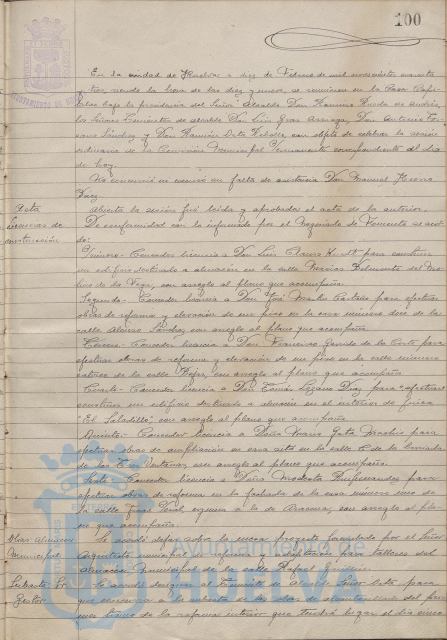 100
En la ciudad de Huelva a diez de Febrero de mil novecientos cuarenta
y tres, siendo la hora de las diez y nueve, se reunieron en la Casa Capi-
tular bajo la presidencia del Señor Alcalde Don
los Señores Tenientes de alcalde Don Luis Gras Arroyo, Don Antonio
Sánchez y Don Ramón con objeto de celebrar la sesión
ordinaria de la Comisión Municipal Permanente correspondiente al día
de hoy.
No concurrió ni excusó su falta de asistencia Don Manuel
Acta
Abierta la sesión fué leída y aprobada el acta de la anterior.
Licencias de
construcción
De conformidad con lo informado por el Negociado de Fomento se acor-
dó:
Primero.- Conceder licencia a Don Luis para construir
un edificio destinado a almacén en la calle del Mo-
lino de la Vega, con arreglo al plano que acompaña.
Segundo.- Conceder licencia a Don José para efectuar
obras de reforma y elevación de un piso en la casa número doce de la
calle Alonso Sánchez con arreglo al plano que acompaña.
Tercero.- Conceder licencia a Don Francisco Garrido de la Corte para
efectuar obras de reforma y elevación de un piso en la calle número
catorce de la calle con arreglo al plano que acompaña.
Cuarto.- Conceder licencia a Don Tomás Lozano Díaz para efectuar
construir un edificio destinado a almacén en el interior de finca
"El Saladillo", con arreglo al plano que acompaña.
Quinto.- Conceder licencia a Doña María para
efectuar obras de ampliación en casa sita en la calle C de la
de las Ventanas, con arreglo al plano que acompaña.
Sexto.- Conceder licencia a Doña Modesta para
efectuar obras de reforma en la fachada de la casa número uno de
la calle esquina a la de Aracena, con arreglo al pla-
no que acompaña.
Obras Almacén
Municipal
Se acordó dejar sobre la mesa proyecto formulado por el Señor
Arquitecto municipal de reforma y habilitación para talleres del
almacén municipal de la calle Rafael Guillén.
Subasta
Se acordó designar al Teniente de alcalde Señor para
que concurra a la subasta de las obras de alcantarillado del pri-
mer tramo de la reforma interior que tendrá lugar el día cinco
Ayuntamiento de